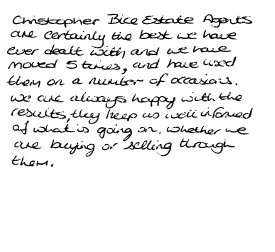 Christopher Bice Estate Agents
are certainly the best we have
ever dealt with, and we have
moved 5 times, and have used
them on a number of occasions.
We are always happy with the
results, they keep us well informed
of what is going on, whether we
are buying or selling through
them.